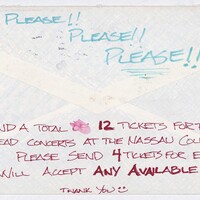 PLEASE!!
PLEASE!!
PLEASE!!
ND A TOTAL 12 TICKETS FOR T
EAD CONCERTS AT THE NASSAU COL
PLEASE SEND 4 TICKETS FOR E
WILL ACCEPT ANY AVAILABLE
THANK YOU